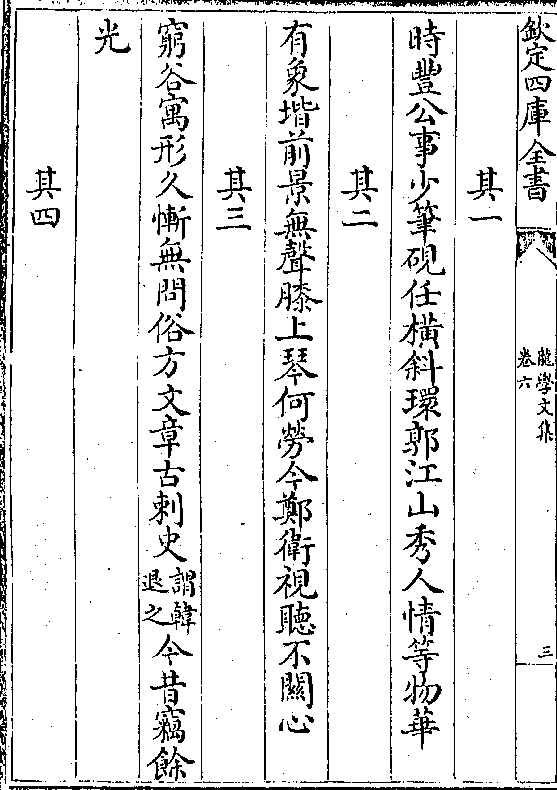 欽定四庫全書
龍學文集
卷六
三
其一
時豐公事少筆硯任橫斜環郭江山秀人情等物華
其二
有象堦前景無聲膝上琴何勞今鄭衛視聽不關心
其三
窮谷寓形久慚無問俗方文章古刺史謂韓退之今昔竊餘
光
其四